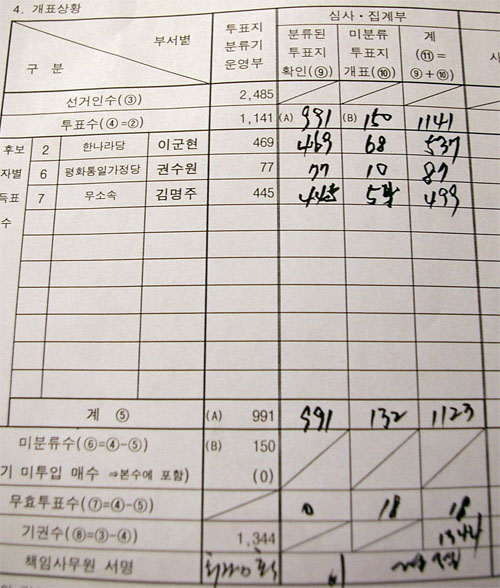 4. 개표상황
부서별
구 분
투표지
분류기
운영부
심사·집계부
분류된
투표지
확인(⑨)
미분류
투표지
개표(⑩)
계
(⑪=
⑨+⑩)
선거인수(③) 2,485
투표수(④=②) 1,141 (A) 991 (B) 150 1141
후보 2 한나라당 이군현 469 469 68 537
자별 6 평화통일가정당 권수원 77 77 10 87
득표 7 무소속 김명주 445 445 54 499
수
계 ⑤ (A) 991 991 132 1123
미분류수(⑥=④-⑤) (B) 150
기 미투입 매수 ⇒본수에 포함) (0)
무효투표수(⑦=④-⑤) 0 18 18
기권수(⑧=③-④) 1,344 1344
책임사무원 서명